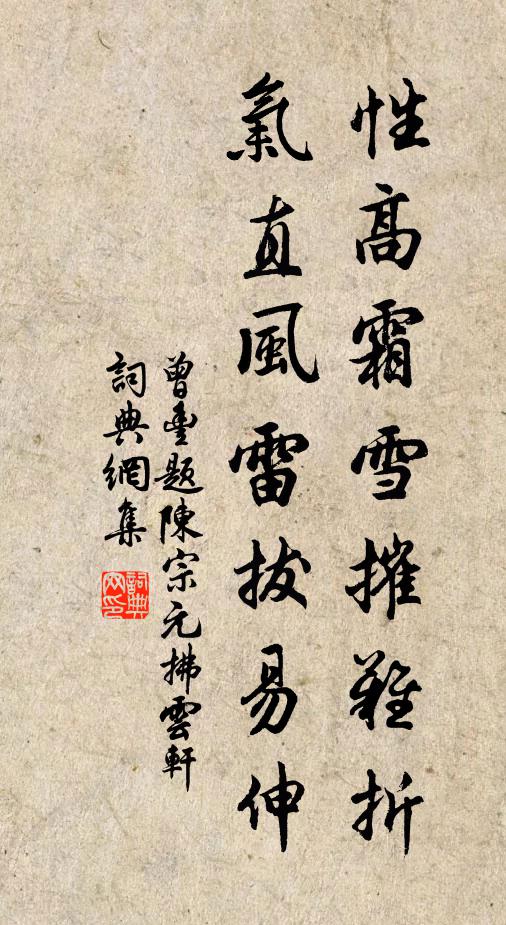 性高霜雪摧難折
氣直風雷拔易伸
曾豐題陳宗元拂雲軒
詞典網集
詞典网印